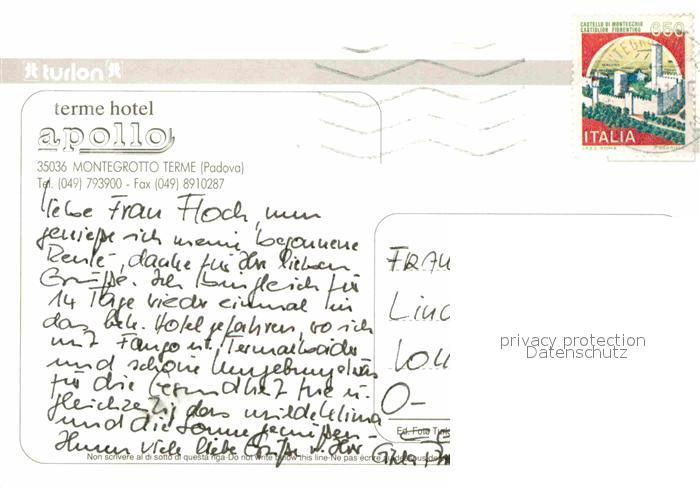 CASTELLO DI MONTECCHIO
CASTIGLION FIORENTINO
650
ITALIA
turlon
terme hotel
apollo
35036 MONTEGROTTO TERME (Padova)
Tel. (049) 793900 - Fax (049) 8910287
Liebe Frau Floch, nun
genieße ich meine begonnene
Rente, danke für Ihre lieben
Grüße. Ich bin gleich für
14 Tage wieder einmal in
das bek. Hotel gefahren, wo ich
mit Fango u. Termalbäder
und schöne Umgebung etwas
für die Gesundheit tue u.
gleichzeitig das milde Klima
und die Sonne genießen
Ihnen viele liebe Grüße v. Ihrer
FRAU
O-
privacy protection
Datenschutz
Non scrivere al di sotto di questa riga-Do not write below this line-Ne pas écrire au dessous de